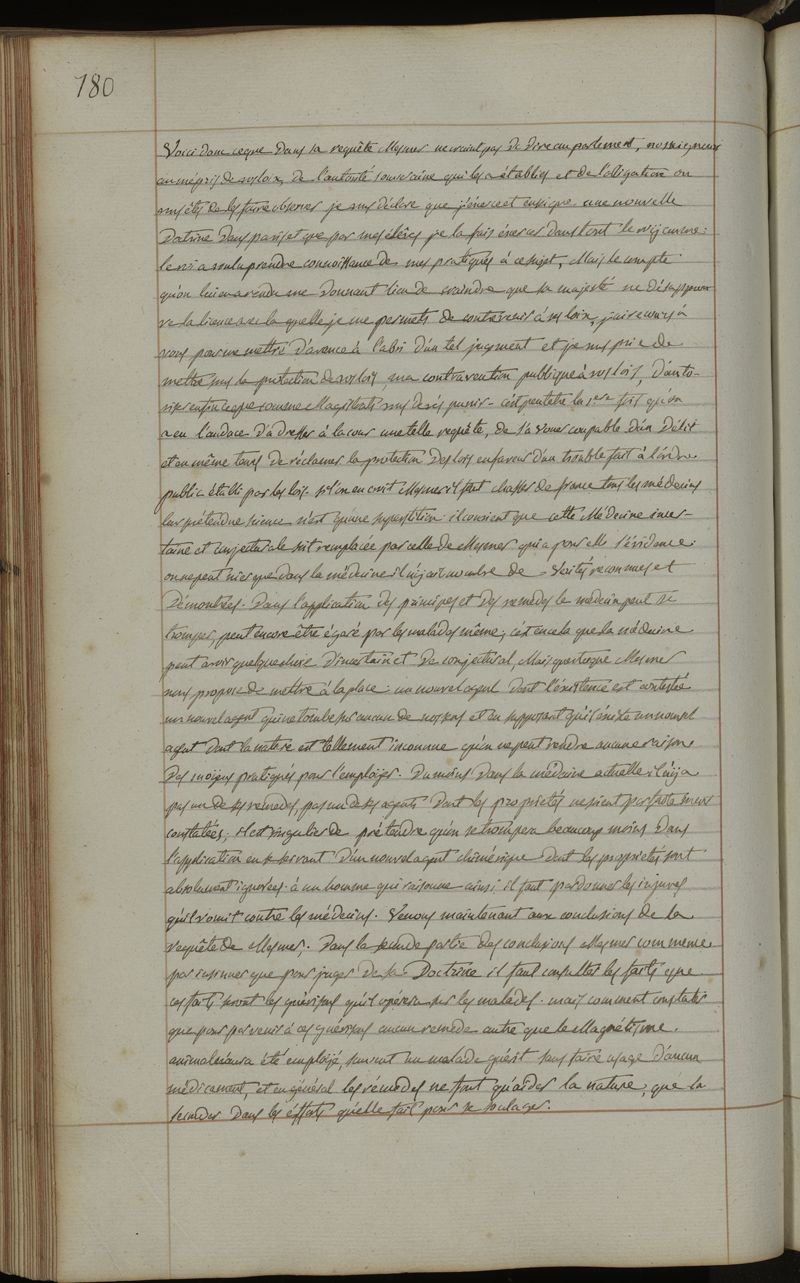 180
Voici donc ceque Dans sa requête Mesmer ne craint pas De dire au parlement, nosseigneurs
au mépris de vos loix, De l'autorité souveraine qui les a établies et de l'obligation ou
vous êtes de les faire observer je vous déclare que j'exerce et enseigne une nouvelle
Doctrine Dans paris et que par mes élèves je la fais exercer Dans tout le royaume:
le roi a voulu prendre connoissance de mes pratiques à ce sujet, Mais le compte
qu'on lui en a rendu me Donnant lieu de craindre que sa majesté ne Désapprou
ve la licence avec la quelle je me permets de contrevenir à ses loix, j'ai recours à
vous pour me mettre D'avance à l'abri D'un tel jugement et je vous prie de
mettre sous la protection de vos lois, ma contravention publique à vos lois, D'auto-
riser enfin ceque comme Magistrats vous devés punir - c'est peutetre la 1ere fois qu'on
a eu l'audace D'adresser à la cour une telle requête, de s'avouer coupable D'un Délit
et en même tems de réclamer la protection Des lois en faveur D'un trouble fait à l'ordre
public établi par les lois. si l'on en croit Mesmer il faut chasser de france tous les médecins
leur prétendue science n'est qu'une superstition: il convient que cette Médecine incer-
taine et conjecturale soit remplacée par celle de Mesmer qui a pour elle l'évidence:
on ne peut nier que Dans la médecine il n'y ait nombre de vérités reconnues et
Démontrées. Dans l'application des principes et des remedes le medecin peut se
tromper, peut encore être égaré par les malades même, c'est en cela que la médecine
peut avoir quelque chose D'incertain et De conjectural, Mais qu'est ce que Mesmer
nous propose de mettre à la place: un nouvel agent Dont l'éxistence est contestée
un nouvel agent qui ne tombe sur aucun de nos sens et en supposant qu'il éxiste un nouvel
agent Dont la nature est tellement inconnue qu'on ne peut rendre aucune raison
Des moyens pratiqués pour l'employer. Du moins Dans la médecine actuelle il n'y a
pas un de ses remedes, pas un de ses agents Dont les propriétés ne soient parfaitement
constatées; il est singulier de prétendre qu'on se trompera beaucoup moins Dans
l'application en se servant D'un nouvel agent chimérique Dont les propriétés sont
absolument ignorées. à un homme qui raisonne ainsi il faut pardonner les injures
qu'il vomit contre les médecins. Venons maintenant aux conclusions de la
requête de Mesmer. Dans la seconde partie des conclusions Mesmer commence
par insinuer que pour juger De sa Doctrine il faut consulter les faits que
ces faits seront les guérisons qu'il opérera sur les malades. mais comment constater
que pour parvenir à ces guérisons aucun remede autre que le Magnétisme
animal n'aura été employé, souvent un malade guérit sans faire usage D'aucun
médicament, et en général les remédes ne font qu'aider la nature, que la
seconder Dans les éfforts qu'elle fait pour se soulager.